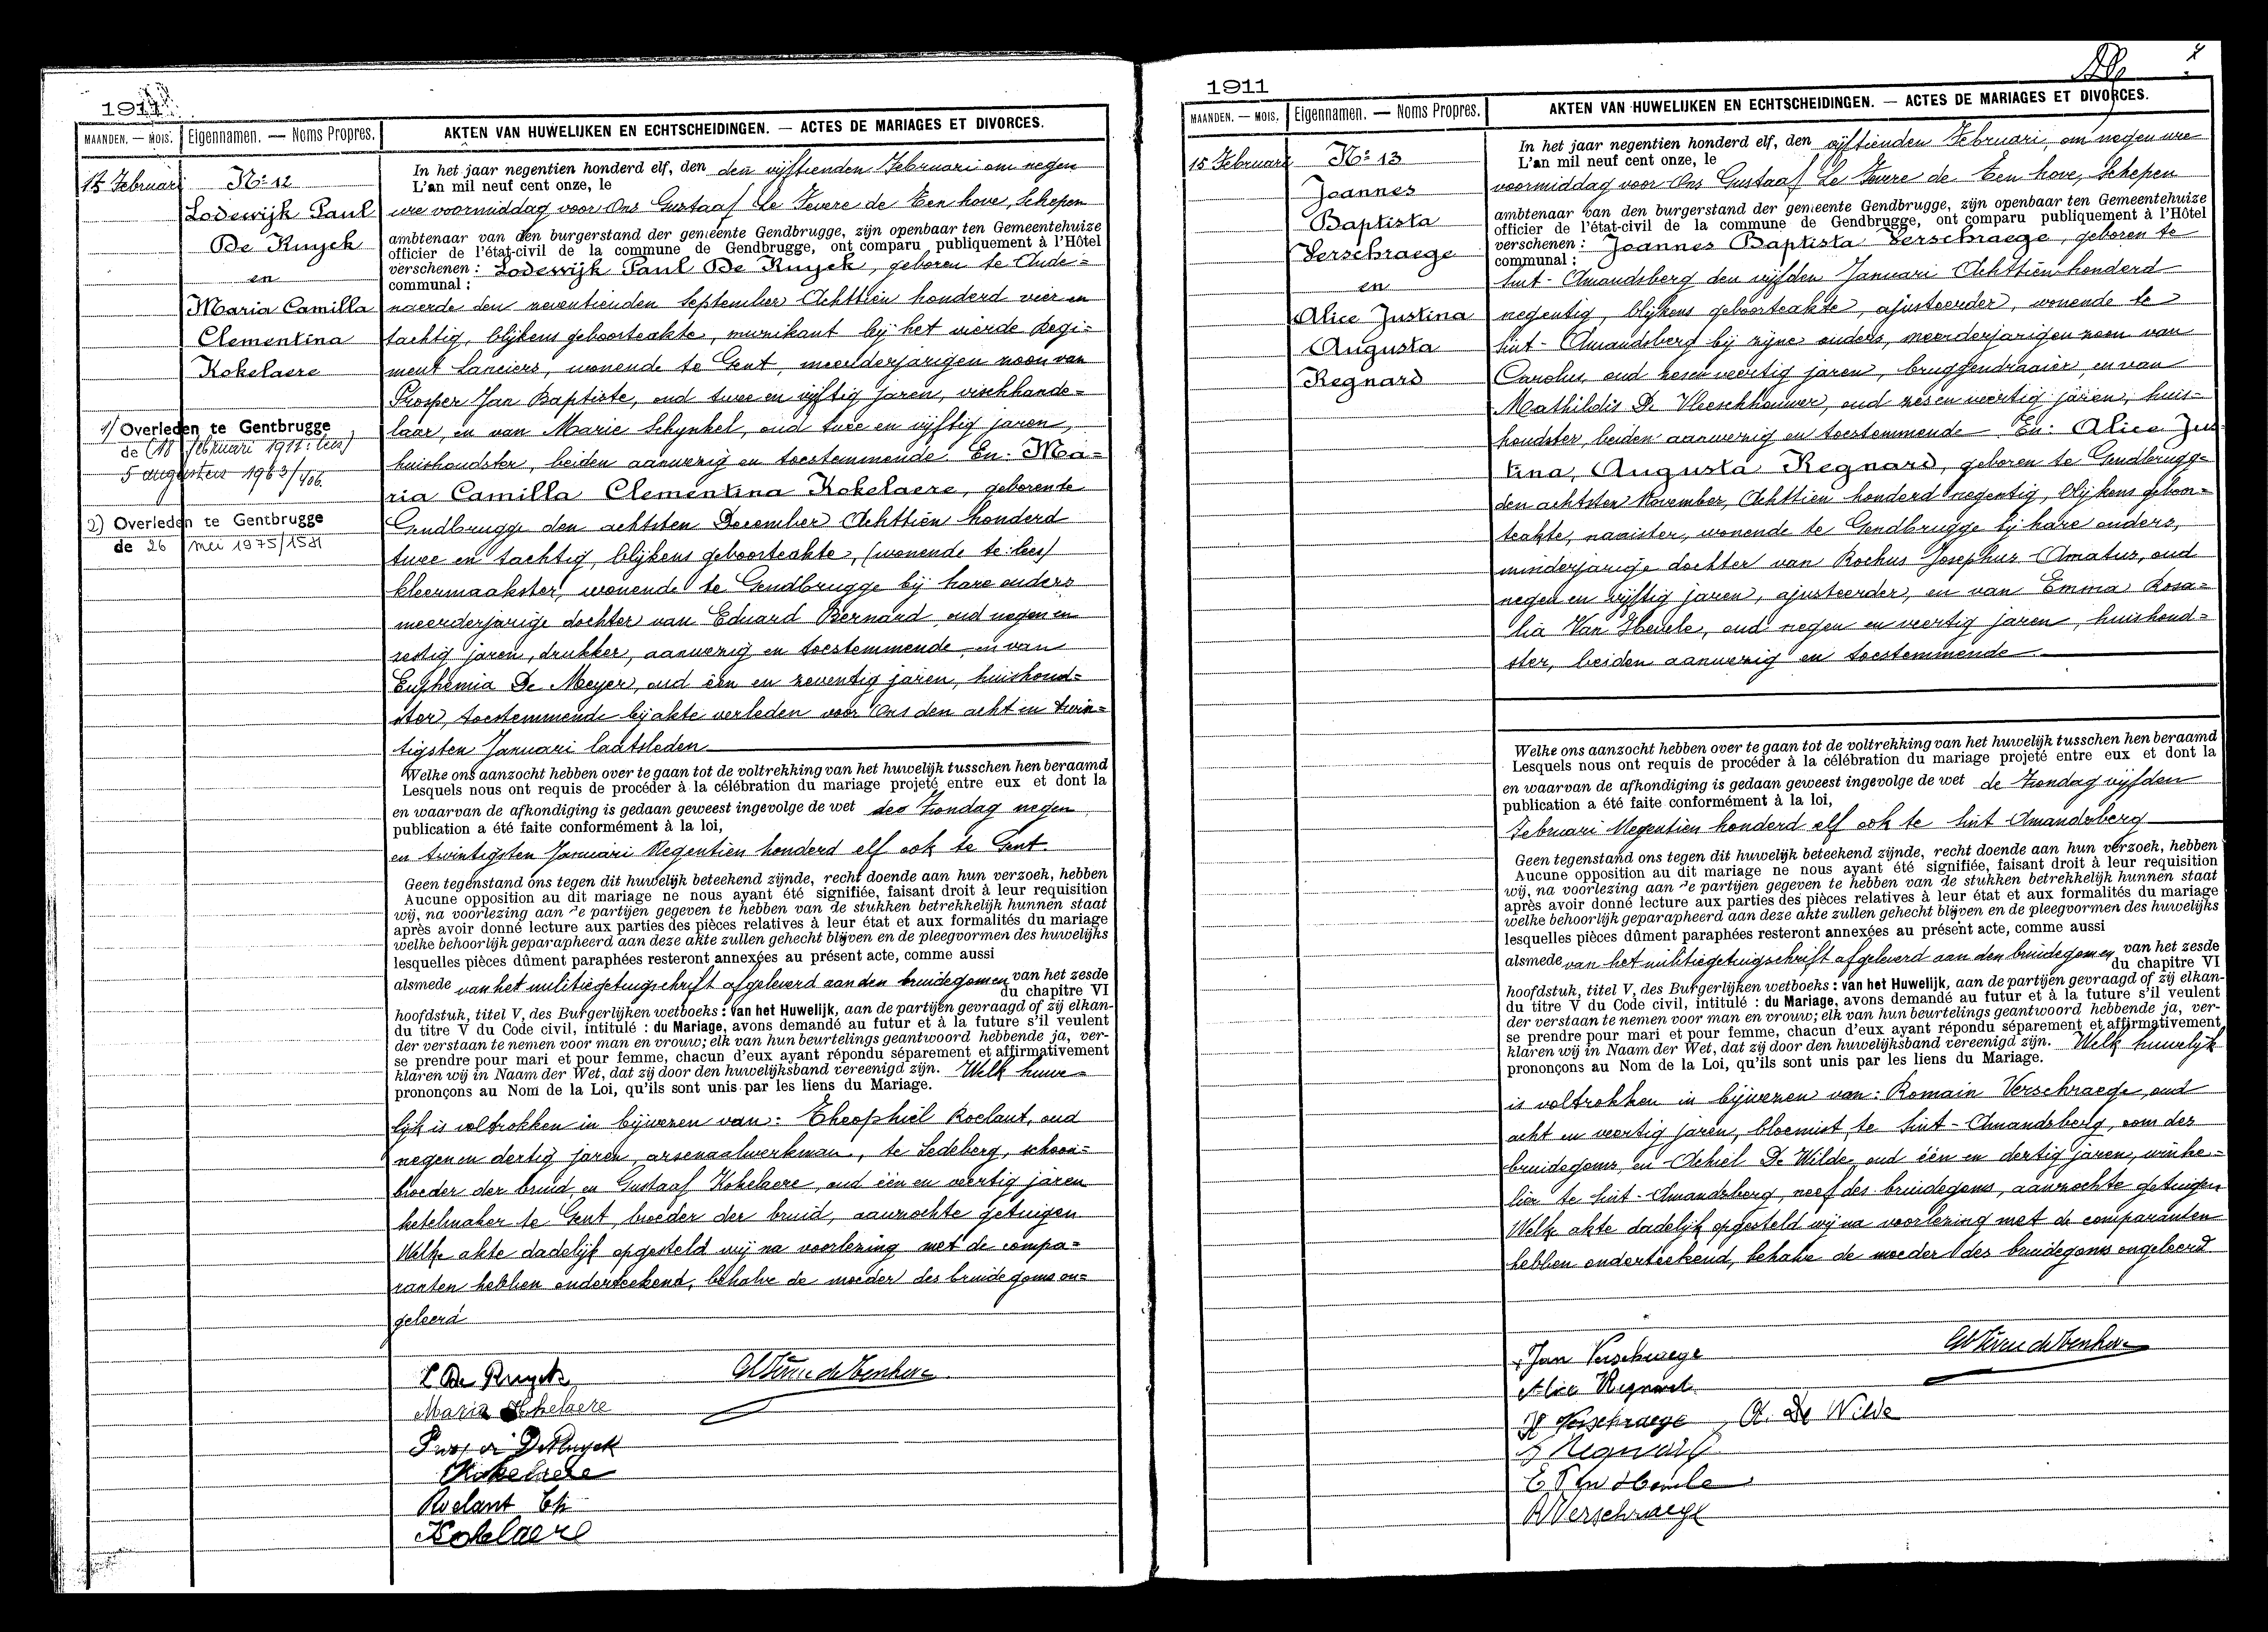 1911
MAANDEN. — MOIS.
Eigennamen. — Noms Propres.
AKTEN VAN HUWELIJKEN EN ECHTSCHEIDINGEN. — ACTES DE MARIAGES ET DIVORCES.
15 Februari
No 12
Lodewijk Paul
De Ruyck
en
Maria Camilla
Clementina
Kokelaere
1) Overleden te Gentbrugge
de (18 februari 1911: lees)
5 augustus 1963/406
2) Overleden te Gentbrugge
de 26 mei 1975/1581
In het jaar negentien honderd elf, den den vijftienden Februari om negen
L'an mil neuf cent onze, le
ure voormiddag voor Ons Gustaaf Le Fevere de Ten hove, Schepen
ambtenaar van den burgerstand der gemeente Gendbrugge, zijn openbaar ten Gemeentehuize
officier de l'état-civil de la commune de Gendbrugge, ont comparu publiquement à l'Hôtel
verschenen : Lodewijk Paul De Ruyck, geboren te Aude=
communal :
naerde den zeventienden September Achttien honderd vier en
tachtig, blijkens geboorteakte, muzikant bij het vierde Regi=
ment Lanciers, wonende te Gent, meerderjarigen zoon van
Prosper Jan Baptiste, oud twee en vijftig jaren, vischhande=
laar, en van Marie Schynkel, oud twee en vijftig jaren,
huishoudster, beiden aanwezig en toestemmende. En: Ma=
ria Camilla Clementina Kokelaere, geboren te
Gendbrugge den achtsten December Achttien honderd
twee en tachtig, blijkens geboorteakte, (wonende te: lees)
kleermaakster, wonende te Gendbrugge bij hare ouders
meerderjarige dochter van Eduard Bernard, oud negen en
zestig jaren, drukker, aanwezig en toestemmende en van
Euphemia De Meyer, oud één en zeventig jaren, huishoud=
ster, toestemmende bij akte verleden voor Ons den acht en twin=
tigsten Januari laatsleden
Welke ons aanzocht hebben over te gaan tot de voltrekking van het huwelijk tusschen hen beraamd
Lesquels nous ont requis de procéder à la célébration du mariage projeté entre eux et dont la
en waarvan de afkondiging is gedaan geweest ingevolge de wet des Zondag negen
publication a été faite conformément à la loi,
en twintigsten Januari Negentien honderd elf ook te Gent.
Geen tegenstand ons tegen dit huwelijk beteekend zijnde, recht doende aan hun verzoek, hebben
Aucune opposition au dit mariage ne nous ayant été signifiée, faisant droit à leur requisition
wij, na voorlezing aan de partijen gegeven te hebben van de stukken betrekkelijk hunnen staat
après avoir donné lecture aux parties des pièces relatives à leur état et aux formalités du mariage
welke behoorlijk geparapheerd aan deze akte zullen gehecht blijven en de pleegvormen des huwelijks
lesquelles pièces dûment paraphées resteront annexées au présent acte, comme aussi
alsmede van het militiegetuigschrift afgeleverd aan den bruidegomen van het zesde
du chapitre VI
hoofdstuk, titel V, des Burgerlijken wetboeks : van het Huwelijk, aan de partijen gevraagd of zij elkan-
du titre V du Code civil, intitulé : du Mariage, avons demandé au futur et à la future s'il veulent
der verstaan te nemen voor man en vrouw; elk van hun beurtelings geantwoord hebbende ja, ver-
se prendre pour mari et pour femme, chacun d'eux ayant répondu séparement et affirmativement
klaren wij in Naam der Wet, dat zij door den huwelijksband vereenigd zijn. Welk huwe=
prononçons au Nom de la Loi, qu'ils sont unis par les liens du Mariage.
lijk is voltrokken in bijwezen van: Theophiel Roelant, oud
negen en dertig jaren, arsenaalwerkman, te Ledeberg, schoon=
broeder der bruid, en Gustaaf Kokelaere, oud één en veertig jaren
ketelmaker te Gent, broeder der bruid, aanzochte getuigen
Welke akte dadelijk opgesteld wij na voorlezing met de compa=
ranten hebben onderteekend, behalve de moeder des bruidegoms on=
geleerd
L De Ruyck
Maria Kokelaere
DeRuyck
Kokelaere
Roelant Th
Kokelaere
1911
MAANDEN. — MOIS.
Eigennamen. — Noms Propres.
AKTEN VAN HUWELIJKEN EN ECHTSCHEIDINGEN. — ACTES DE MARIAGES ET DIVORCES.
15 Februari
No 13
Joannes
Baptista
Verschraege
en
Alice Justina
Augusta
Regnard
In het jaar negentien honderd elf, den vijftienden Februari, om negen ure
L'an mil neuf cent onze, le
voormiddag voor Ons Gustaaf Le Fevere de Ten hove, Schepen
ambtenaar van den burgerstand der gemeente Gendbrugge, zijn openbaar ten Gemeentehuize
officier de l'état-civil de la commune de Gendbrugge, ont comparu publiquement à l'Hôtel
verschenen : Joannes Baptista Verschraege, geboren te
communal :
Sint-Amandsberg den vijfden Januari Achttien honderd
negentig, blijkens geboorteakte, ajusteerder, wonende te
Sint-Amandsberg bij zijne ouders, meerderjarigen zoon van
Carolus, oud zesen veertig jaren, bruggendraaier, en van
Mathildis De Vleeschhouwer, oud zes en veertig jaren, huis=
houdster, beiden aanwezig en toestemmende En: Alice Jus
tina, Augusta Regnard, geboren te Gendbrugge
den achtsten November, Achttien honderd negentig, blijkens geboor=
teakte, naaister, wonende te Gendbrugge bij hare ouders,
minderjarige dochter van Rochus Josephus Amatus, oud
negen en vijftig jaren, ajusteerder, en van Emma Rosa=
lia Van Hevele, oud negen en veertig jaren, huishoud=
ster, beiden aanwezig en toestemmende
Welke ons aanzocht hebben over te gaan tot de voltrekking van het huwelijk tusschen hen beraamd
Lesquels nous ont requis de procéder à la célébration du mariage projeté entre eux et dont la
en waarvan de afkondiging is gedaan geweest ingevolge de wet de Zondag vijfden
publication a été faite conformément à la loi,
Februari Negentien honderd elf ook te Sint Amandsberg
Geen tegenstand ons tegen dit huwelijk beteekend zijnde, recht doende aan hun verzoek, hebben
Aucune opposition au dit mariage ne nous ayant été signifiée, faisant droit à leur requisition
wij, na voorlezing aan de partijen gegeven te hebben van de stukken betrekkelijk hunnen staat
après avoir donné lecture aux parties des pièces relatives à leur état et aux formalités du mariage
welke behoorlijk geparapheerd aan deze akte zullen gehecht blijven en de pleegvormen des huwelijks
lesquelles pièces dûment paraphées resteront annexées au présent acte, comme aussi
alsmede van het militiegetuigschrift afgeleverd aan den bruidegomen van het zesde
du chapitre VI
hoofdstuk, titel V, des Burgerlijken wetboeks : van het Huwelijk, aan de partijen gevraagd of zij elkan-
du titre V du Code civil, intitulé : du Mariage, avons demandé au futur et à la future s'il veulent
der verstaan te nemen voor man en vrouw; elk van hun beurtelings geantwoord hebbende ja, ver-
se prendre pour mari et pour femme, chacun d'eux ayant répondu séparement et affirmativement
klaren wij in Naam der Wet, dat zij door den huwelijksband vereenigd zijn. Welk huwelijk
prononçons au Nom de la Loi, qu'ils sont unis par les liens du Mariage.
is voltrokken in bijwezen van: Romain Verschraege, oud
acht en veertig jaren, bloemist, te Sint-Amandsberg, oom des
bruidegoms, en Achiel De Wilde, oud één en dertig jaren, winke=
lier te Sint-Amandsberg, neef des bruidegoms, aanzochte getuigen
Welke akte dadelijk opgesteld wij na voorlezing met de comparanten
hebben onderteekend, behalve de moeder des bruidegoms ongeleerd
Jan Verschraege
Alice Regnard
Verschraege A. De Wilde
Regnard
E Van Hevele
R Verschraege